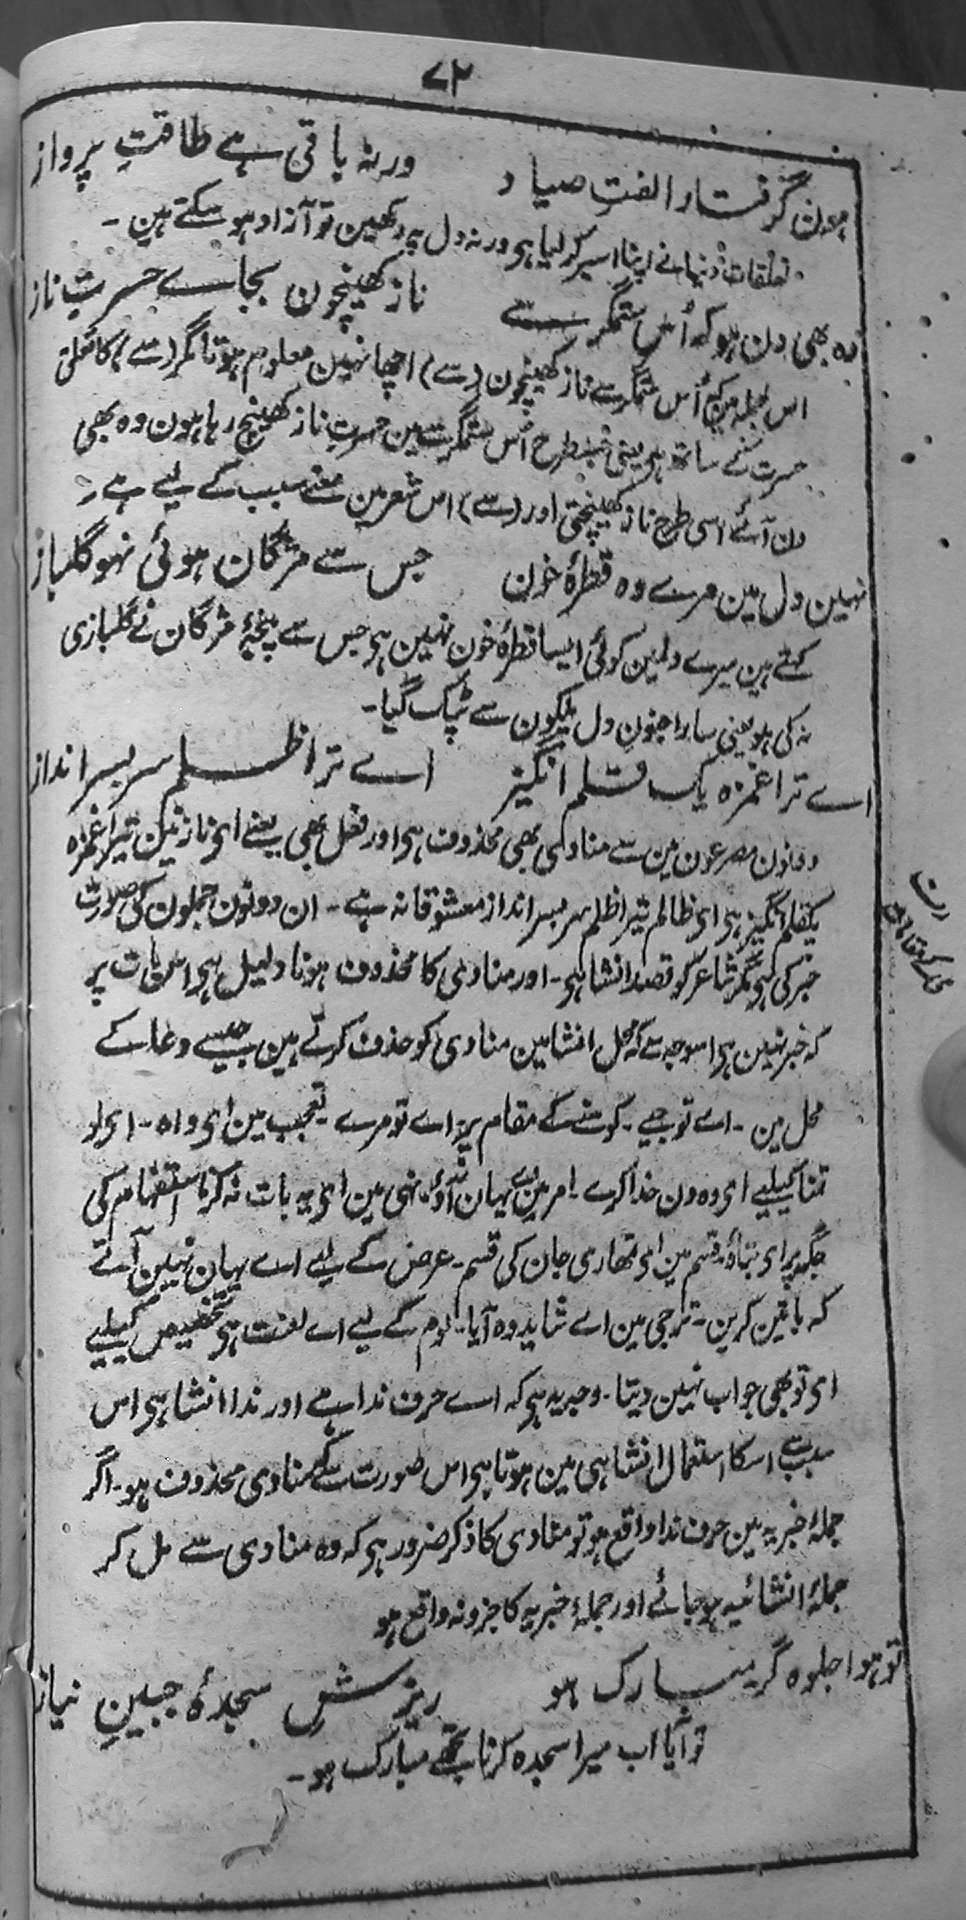 ۷۲
ہون گرفتار الفتِ صیاد ورنہ باقی ہے طاقتِ پرواز
تعلقات دنیا نے اپنا اسیر کر لیا ہی ورنہ دل پہ رکھین تو آزاد ہو سکتے ہین ۔
وہ بھی دن ہو کہ اُس ستمگر سے ناز کھینچون بجاے حسرتِ ناز
اس جملہ مین کہ اُس ستمگر سے ناز کھینچون (سے) اچھا نہین معلوم ہوتا مگر (سے) کا تعلق
حسرت کے ساتھ ہی یعنی جسطرح اُس ستمگر سے مین حسرتِ ناز کھینچ رہا ہون وہ بھی
دن آئے اسی طرح ناز کھینچتی اور (سے) اس شعر مین معنے سبب کے لیے ہے ۔
نہین دل مین مرے وہ قطرۂ خون جس سے مژگان ہوئی نہو گلباز
کہتے ہین میرے دلمین کوئی ایسا قطرۂ خون نہین ہی جس سے پنجۂ مژگان نے گلبازی
نہ کی ہو یعنی سارا خون دل پلکون سے ٹپک گیا ۔
اے ترا غمزہ یک قلم انگیز اے ترا ظلم سر بسر انداز
دونون مصرعون مین سے منادیٰ بھی محذوف ہی اور فعل بھی یعنے ای نازنین تیرا غمزہ
یکقلم انگیز ہی ای ظالم تیرا ظلم سر بسر انداز معشوقانہ ہے ۔ ان دونون جملون کی صورت
خبر کی ہی مگر شاعر کو قصد انشا ہی ۔ اور منادیٰ کا محذوف ہونا دلیل ہی اس بات پر
کہ خبر نہین ہی اسوجہ سے کہ محل انشا مین منادی کو حذف کرتے ہین جیسے دعا کے
محل مین ۔ اے تو جیے ۔ کوسنے کے مقام پر اے تو مرے ۔ تعجب مین ای واہ ۔ ای لو
تمنا کیلیے ای وہ دن خدا کرے ۔ امر مین اے یہان تو آؤ ۔ نہی مین ای یہ بات نہ کرنا استفہام کی
جگہ پر ای بتاؤ ۔ قسم مین ای تمھاری جان کی قسم ۔ عرض کے لیے اے یہان نہین آتے
کہ باتین کرین ۔ ترجی مین اے شاید وہ آیا ۔ لوم کے لیے اے لعنت ہی تخصیص کیلیے
ای تو بھی جواب نہین دیتا ۔ وجہ یہ ہی کہ اے حرف ندا ہے اور ندا انشا ہی اس
سبب سے اسکا استعمال انشا ہی مین ہوتا ہی اس صورت سے کہ منادی محذوف ہو ۔ اگر
جملۂ خبریہ مین حرف ندا واقع ہو تو منادی کا ذکر ضرور ہی کہ وہ منادی سے مل کر
جملۂ انشائیہ ہو جائے اور جملۂ خبریہ کا جزو نہ واقع ہو
تو ہوا جلوہ گر مبارک ہو ریزشِ سجدۂ جبینِ نیاز
تو آیا اب میرا سجدہ کرنا تجھے مبارک ہو ۔